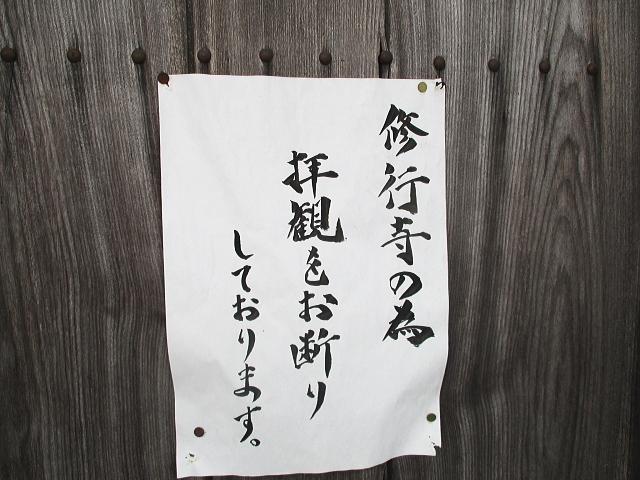 修行寺の為
拝観をお断り
しております。